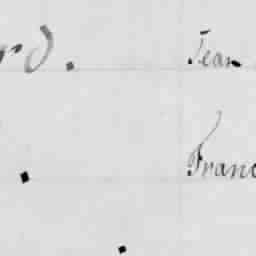 rd. Jean
. Franc